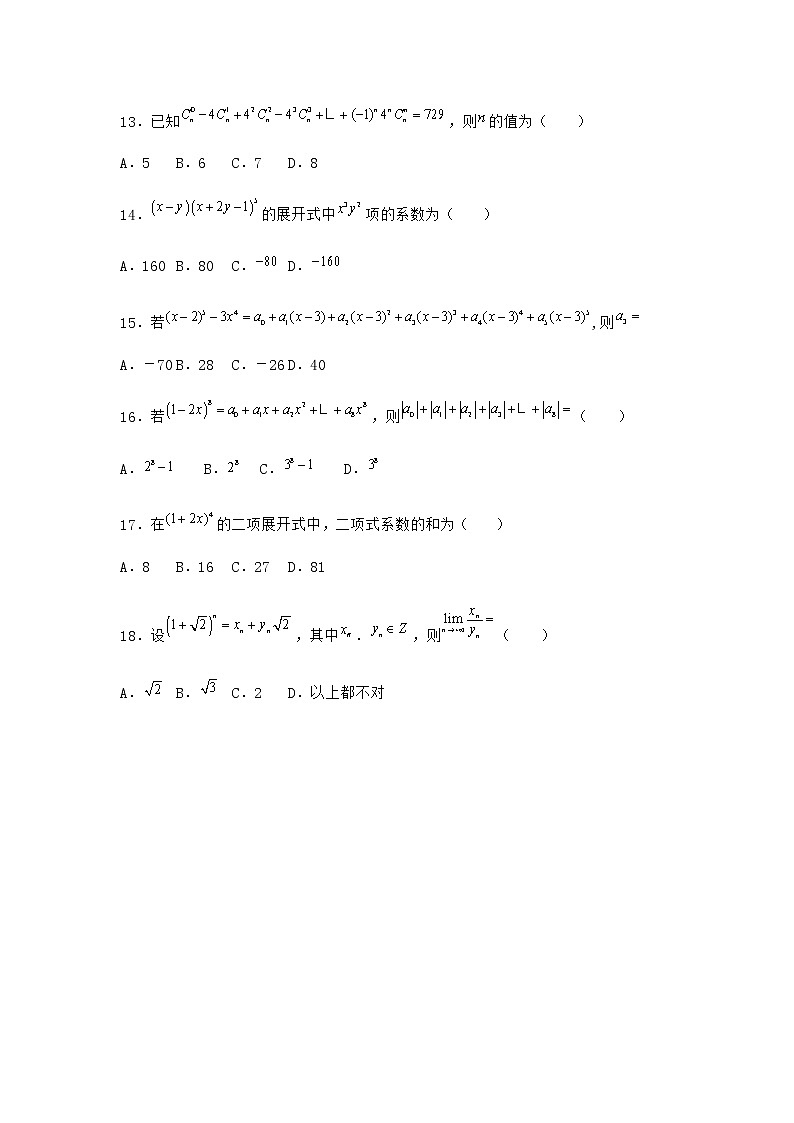 13．已知C_n^0－4C_n^1＋4^2C_n^2－4^3C_n^3＋∟＋(－1)^n4^nC_n^n＝729，则n的值为（　　）
A．5　B．6　C．7　D．8
14．(x－y)(x＋2y－1)^5的展开式中x^3y^2项的系数为（　　）
A．160 B．80　C．－80 D．－160
15．若(x－2)^5－3x^4＝a_0＋a_1(x－3)＋a_2(x－3)^2＋a_3(x－3)^3＋a_4(x－3)^4＋a_5(x－3)^5,则a_3＝
A．－70 B．28　C．－26 D．40
16．若(1－2x)^8＝a_0＋a_1x＋a_2x^2＋∟＋a_8x^8，则|a_0|＋|a_1|＋|a_2|＋|a_3|＋∟＋|a_8|＝（　　）
A．2^8－1　B．2^8　C．3^8－1　D．3^8
17．在(1＋2x)^4的二项展开式中，二项式系数的和为（　　）
A．8　B．16　C．27　D．81
18．设(1＋√2)^n＝x_n＋y_n√2，其中x_n．y_n∈Z，则lim_{n→+∞} x_n/y_n＝（　　）
A．√2　B．√3　C．2　D．以上都不对